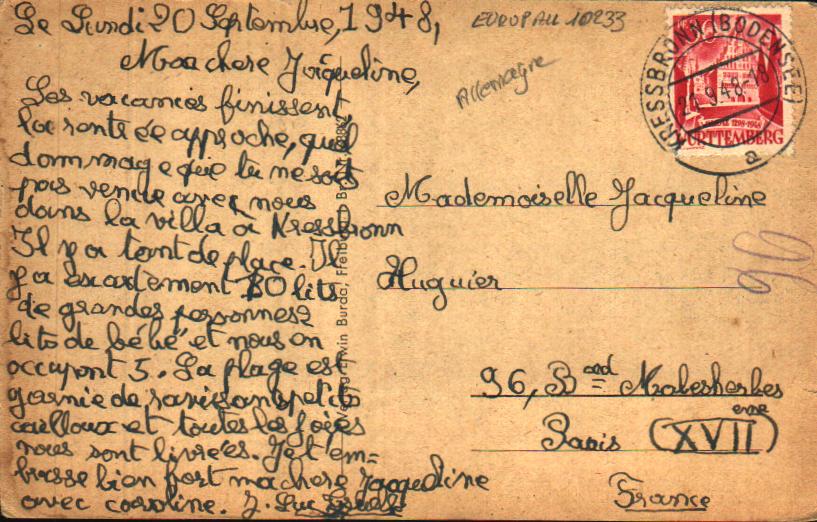 Le Lundi 20 Septembre, 1948,
Ma chere Jacqueline,
Les vacances finissent
la rentrée approche, quel
dommage que tu ne sois
pas venue avec nous
dans la villa à Kressbronn
Il y a tant de place. Il
y a exactement 10 lits
de grandes personnes 2
lits de bébé et nous en
occupont 5. La plage est
garnie de ravissants petits
cailloux et toutes les
nous sont livrées. Je t'em=
brasse bien fort ma chere Jacqueline
avec caroline. J. Luc
EUROPAU 10233
Allemagne
KRESSBRONN (BODENSEE)
9.48-18
a
WÜRTTEMBERG
Mademoiselle Jacqueline
Huguier
96
96, B^ard Malesherbes
Paris (XVII^eme)
France
Erwin Burda, Freiburg